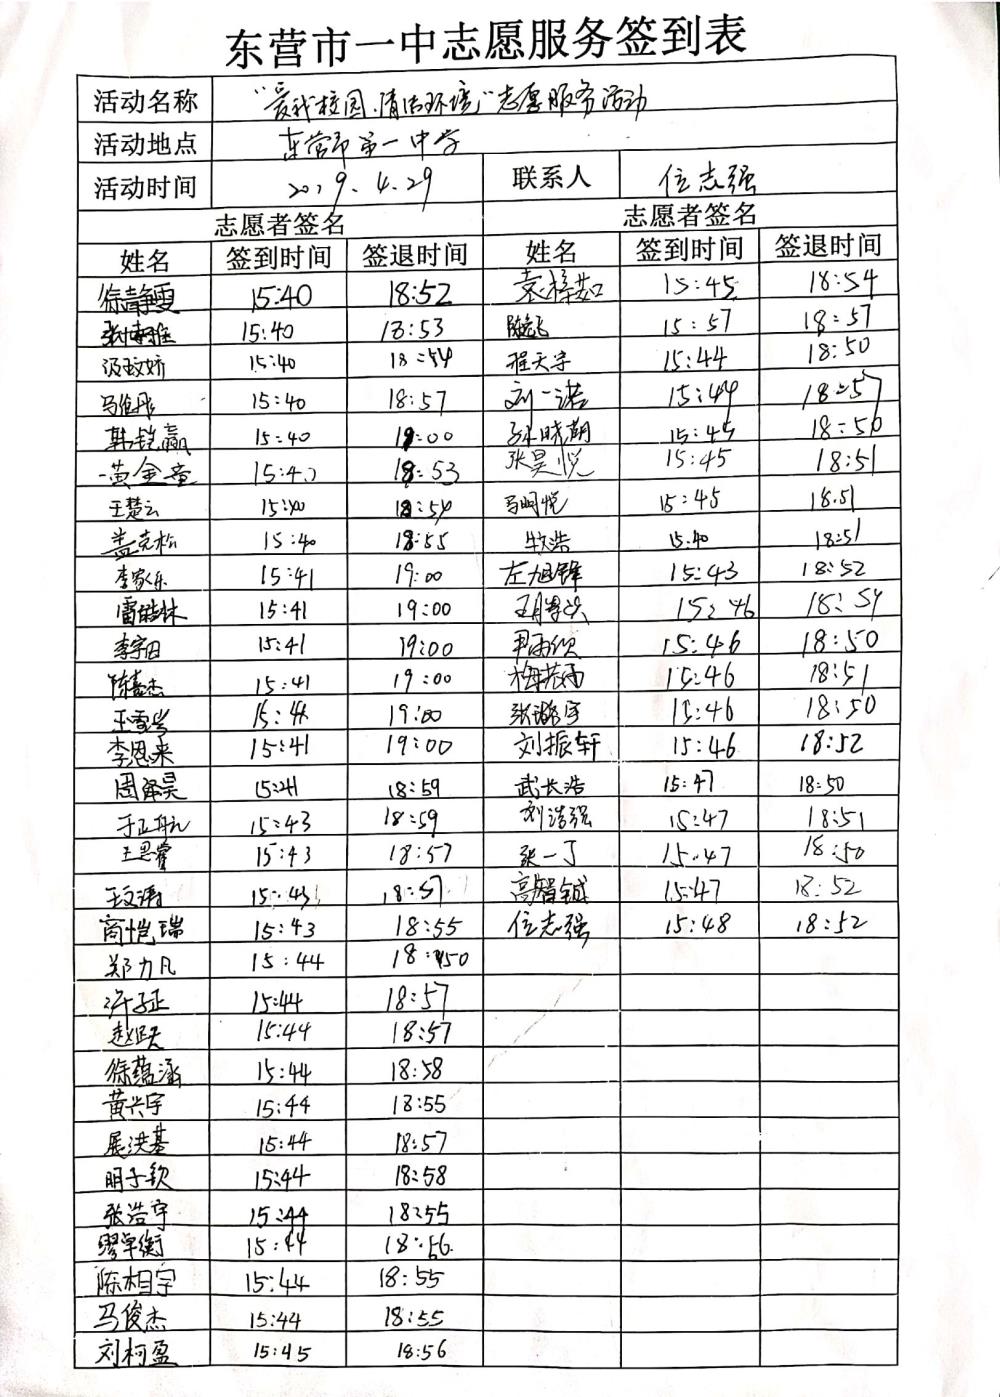 东营市一中志愿服务签到表
活动名称 "爱我校园,清洁环境"志愿服务活动
活动地点 东营市第一中学
活动时间 2019.4.29 联系人 位志强
志愿者签名 志愿者签名
姓名 签到时间 签退时间 姓名 签到时间 签退时间
徐静雯 15:40 18:52 袁梓茹 15:45 18:54
15:40 18:53 15:57 18:57
汤玟娇 15:40 18:54 程天宇 15:44 18:50
15:40 18:57 刘一诺 15:44 18:57
韩铠赢 15:40 19:00 孙晓湖 15:45 18:50
黄金童 15:40 18:53 张昊悦 15:45 18:51
王楚云 15:40 18:54 马明悦 15:45 18.51
盖克松 15:40 18:55 牧浩 15:40 18:51
李家乐 15:41 19:00 左旭锋 15:43 18:52
雷皓林 15:41 19:00 15:46 18:54
李宇日 15:41 19:00 尹雨欣 15:46 18:50
陈嘉杰 15:41 19:00 梅若雨 15:46 18:51
15:41 19:00 张璐宇 15:46 18:50
李恩来 15:41 19:00 刘振轩 15:46 18:52
周泽昊 15:41 18:59 武长浩 15:47 18:50
于正航 15:43 18:59 刘浩强 15:47 18:51
王思睿 15:43 18:57 张一丁 15:47 18:50
15:43 18:57 高智钺 15:47 18:52
商恺瑞 15:43 18:55 位志强 15:48 18:52
郑力凡 15:44 18:50
许子正 15:44 18:57
赵跃 15:44 18:57
徐蕴涵 15:44 18:58
黄兴宇 15:44 18:55
展洪基 15:44 18:57
明子钦 15:44 18:58
张浩宇 15:44 18:55
缪宇衡 15:44 18:56
陈相宇 15:44 18:55
马俊杰 15:44 18:55
刘柯盈 15:45 18:56